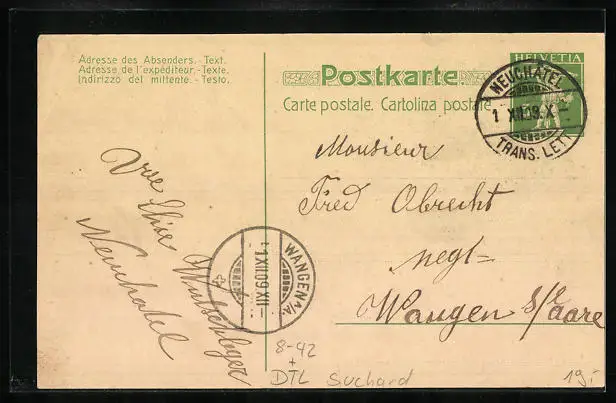 Adresse des Absenders. - Text.
Adresse de l'expéditeur. - Texte.
Indirizzo del mittente. - Testo.
Postkarte.
Carte postale. Cartolina postale.
HELVETIA
NEUCHATEL
TRANS. LETT
Monsieur
Fred Obrecht
negt-
Wangen s/Aare
Neuchatel
WANGEN A/A.
1.XII.09.XI-
8-42
+
DTL Suchard
19.-